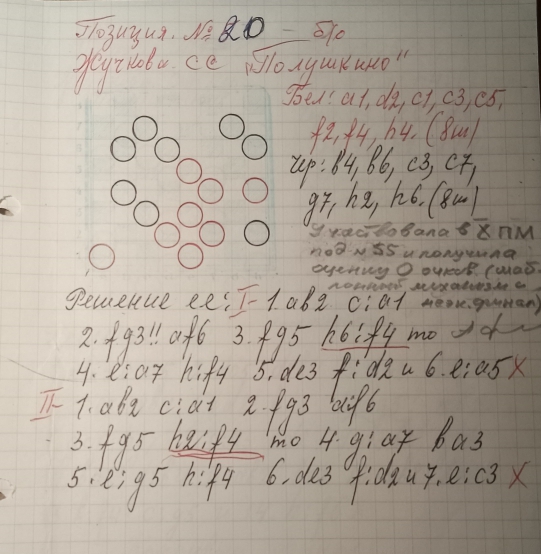 Позиция. № 20 — б/ю
Жучкова СС "Полушкино"
Бел: a1, d2, c1, c3, c5,
f2, f4, h4. (8ш)
Чр: b4, b6, c3, c7,
g7, h2, h6. (8ш)
Участвовала в X ПМ
под №55 и получила
оценку 0 очков (шаб-
лонный механизм и
Решение ее: I- 1. ab2 c:a1 неэк. финал)
2. fg3!! af6 3. fg5 h6:f4 то
4. e:a7 h:f4 5. de3 f:d2 и 6. e:a5 X
II- 1. ab2 c:a1 2. fg3 a:f6
3. fg5 h2:f4 то 4. g:a7 ba3
5. e:g5 h:f4 6. de3 f:d2 и 7. e:c3 X